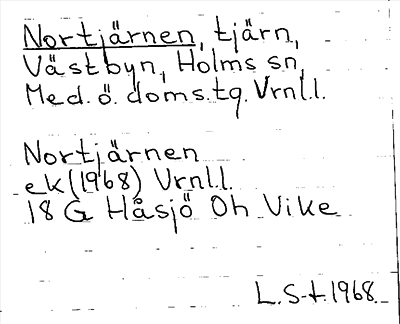 Nortjärnen, tjärn,
Västbyn, Holms sn,
Med. ö. doms.tg. Vrnl.l.
Nortjärnen
ek (1968) Vrnl.l.
18 G Håsjö Oh Vike
L.S-t. 1968.